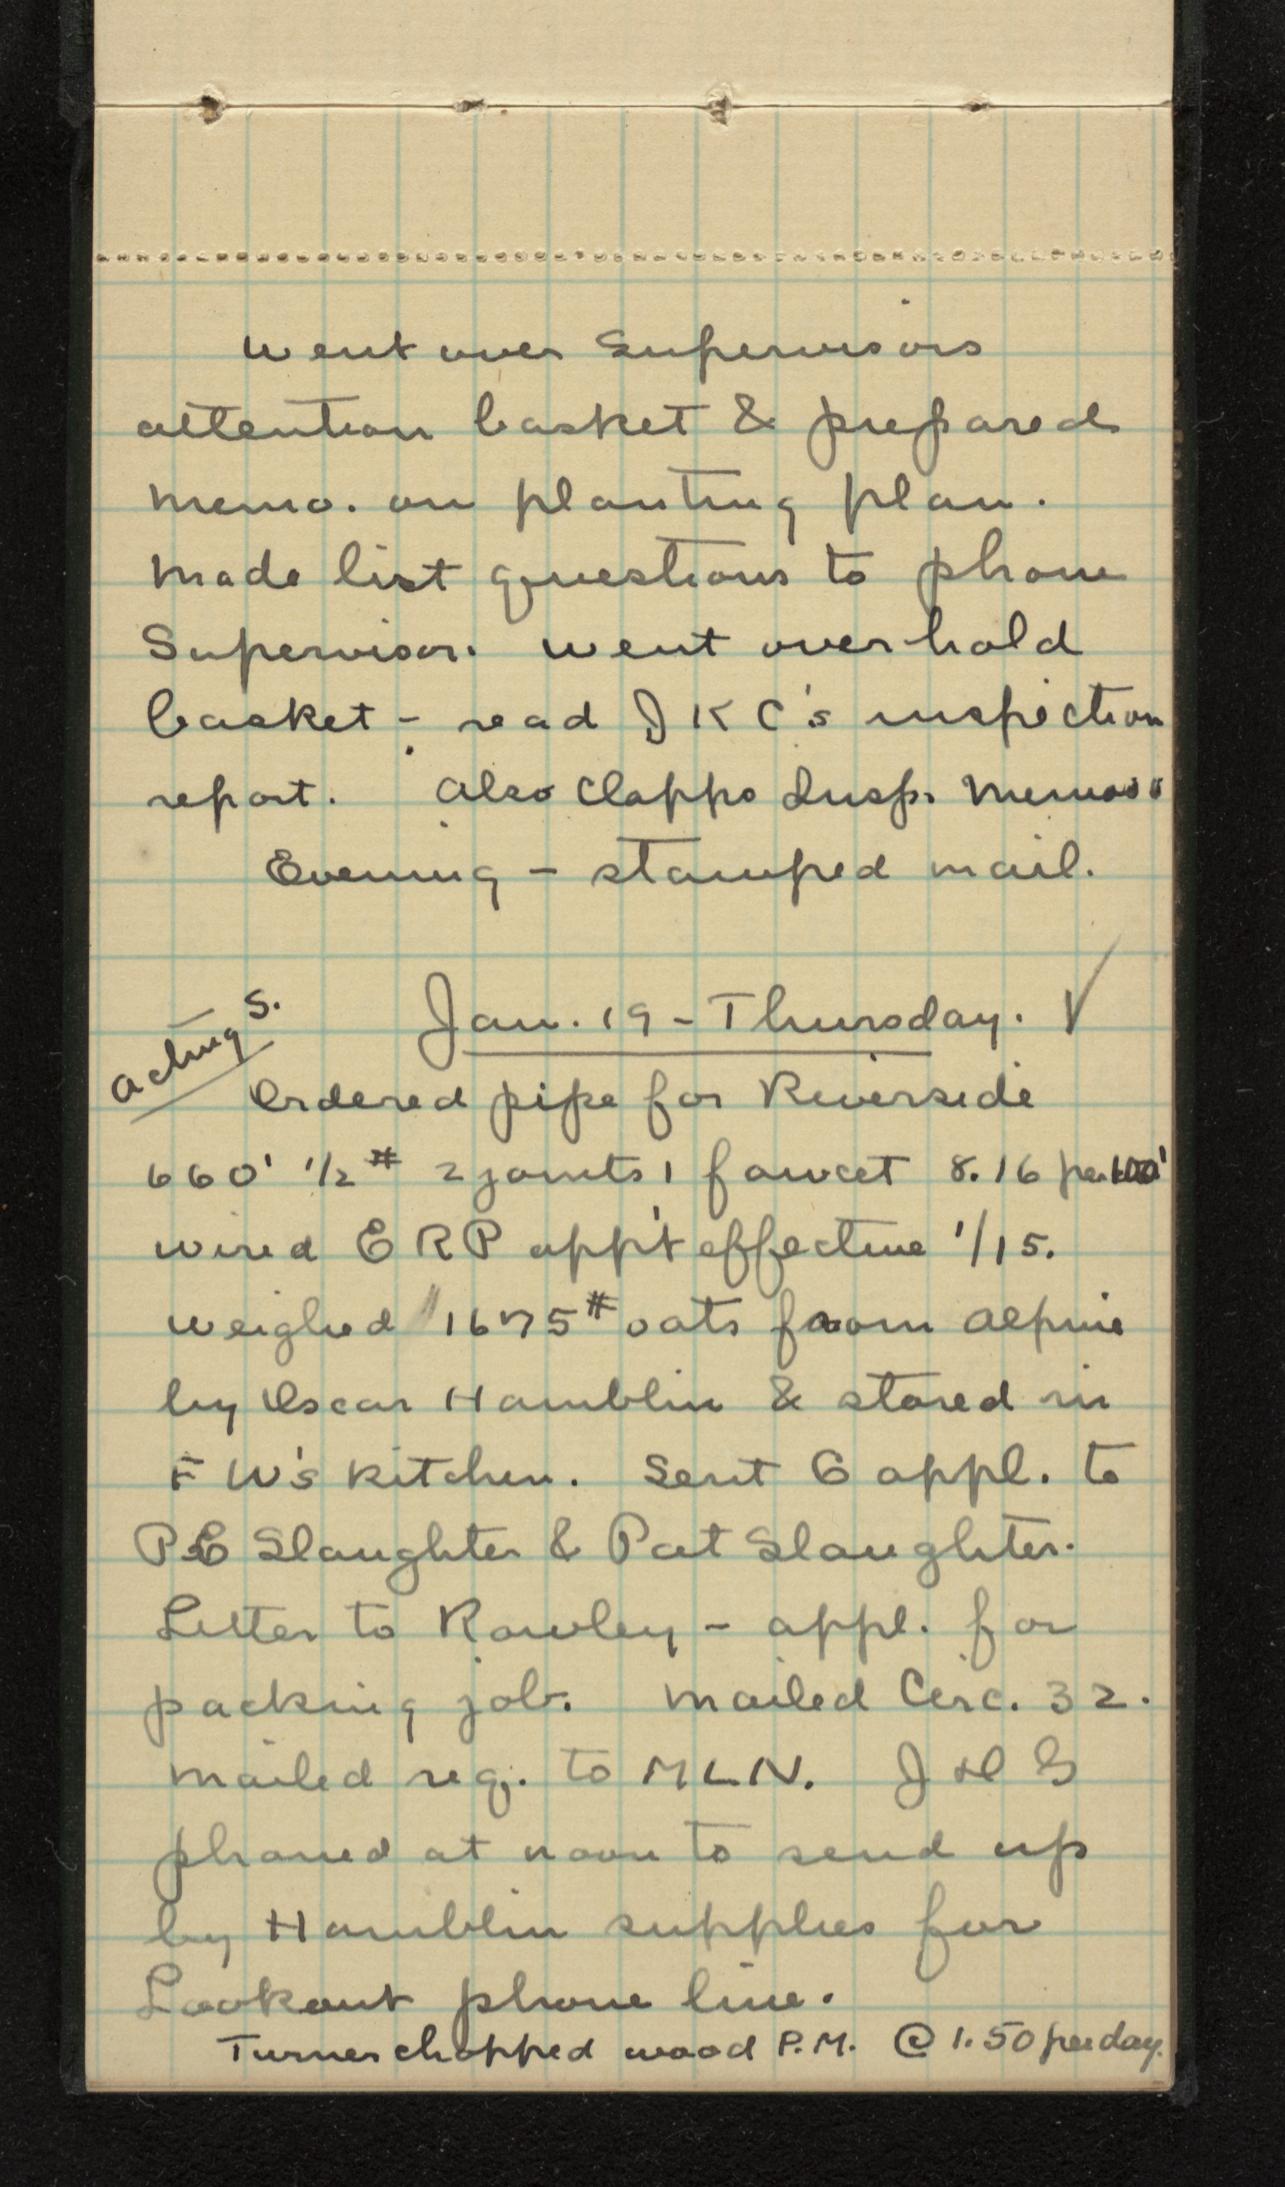 Went over Supervisors
attention basket & prepared
memo. on planting plan.
Made list questions to phone
Supervisor. Went over hold
basket - read JKC's inspection
report. Also Clapps Insp. Memos
Evening - stamped mail.
Acting S.
Jan. 19 - Thursday. ✓
Ordered pipe for Riverside
660' 1/2 # 2 joints 1 fawcet 8.16 per 100'
Wired ERP app't effective 1/15.
Weighed 1675# oats from Alpine
by Oscar Hamblin & stored in
FW's kitchen. Sent G appl. to
PE Slaughter & Pat Slaughter.
Letter to Rowley - appl. for
packing job. Mailed Circ. 32.
Mailed req. to MLN. J
phoned at noon to send up
by Hamblin supplies for
Lookout phone line.
Turner chopped wood P.M. @ 1.50 per day.